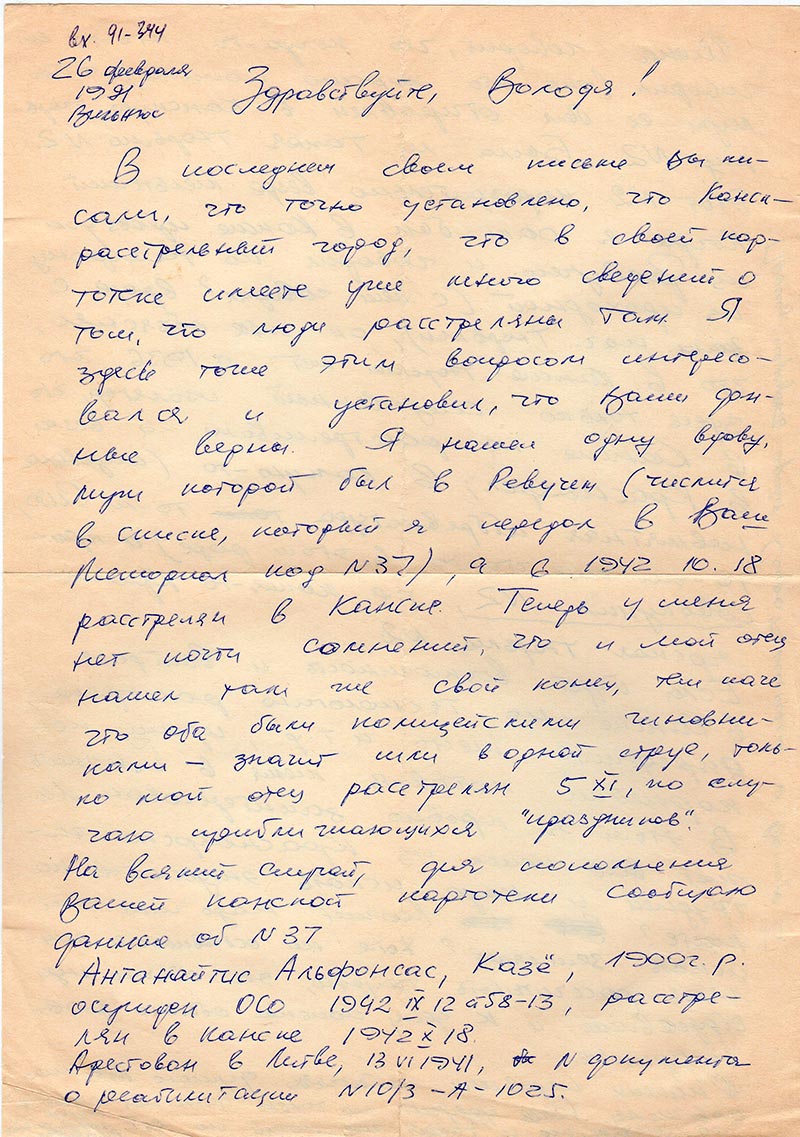 вх. 91-344
26 февраля
1991
Вильнюс
Здравствуйте, Володя!
В последнем своем письме Вы пи-
сали, что точно установлено, что Канск-
расстрельный город, что в своей кар-
тотке имеете уже много сведений о
том, что люди расстреляны там. Я
здесь тоже этим вопросом интересо-
вался и установил, что Ваши дан-
ные верны. Я нашел одну вдову,
муж которой был в Ревучем (числится
в списке, который я передал в Ваш
Мемориал под N37), а в 1942 10. 18
расстрелян в Канске. Теперь у меня
нет почти сомнений, что и мой отец
нашел там же свой конец, тем паче
что оба были полицейскими чиновни-
ками – значит шли в одной струе, толь-
ко мой отец расстрелян 5 XI, по слу-
чаю приближающихся "праздников".
На всякий случай, для пополнения
Вашей канской картотеки сообщаю
данные об N37
Антанайтис Альфонсас, Казё, 1900г. р.
осужден ОСО 1942 IX 12 ст58-13, расстре-
лян в Канске 1942 X 18.
Арестован в Литве, 13 VI 1941, N документа
о реабилитации N10/3 -А- 1025.